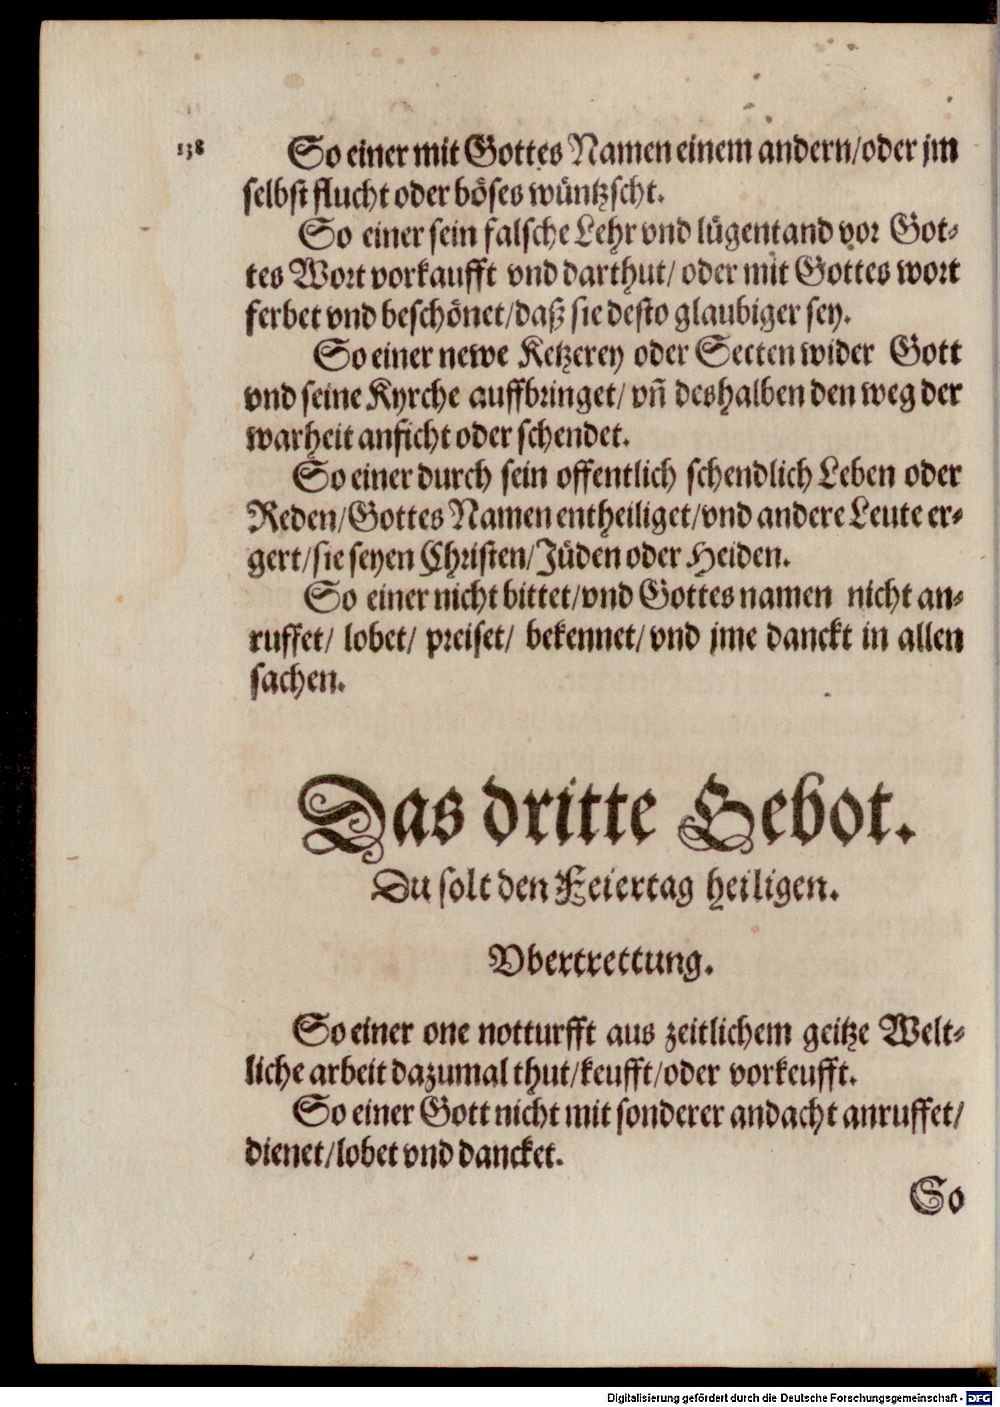 138
So einer mit Gottes Namen einem andern/oder jm
selbst flucht oder böses wüntzscht.
So einer sein falsche Lehr vnd lügentand vor Got⸗
tes Wort vorkaufft vnd darthut/ oder mit Gottes wort
ferbet vnd beschönet/daß sie desto glaubiger sey.
So einer newe Ketzerey oder Secten wider Gott
vnd seine Kyrche auffbringet/ vñ deshalben den weg der
warheit anficht oder schendet.
So einer durch sein offentlich schendlich Leben oder
Reden/Gottes Namen entheiliget/vnd andere Leute er⸗
gert/sie seyen Christen/Jüden oder Heiden.
So einer nicht bittet/vnd Gottes namen nicht an⸗
ruffet/ lobet/ preiset/ bekennet/ vnd jme danckt in allen
sachen.
Das dritte Gebot.
Du solt den Feiertag heiligen.
Vbertrettung.
So einer one notturfft aus zeitlichem geitze Welt⸗
liche arbeit dazumal thut/keufft/oder vorkeufft.
So einer Gott nicht mit sonderer andacht anruffet/
dienet/lobet vnd dancket.
So
Digitalisierung gefördert durch die Deutsche Forschungsgemeinschaft - DFG